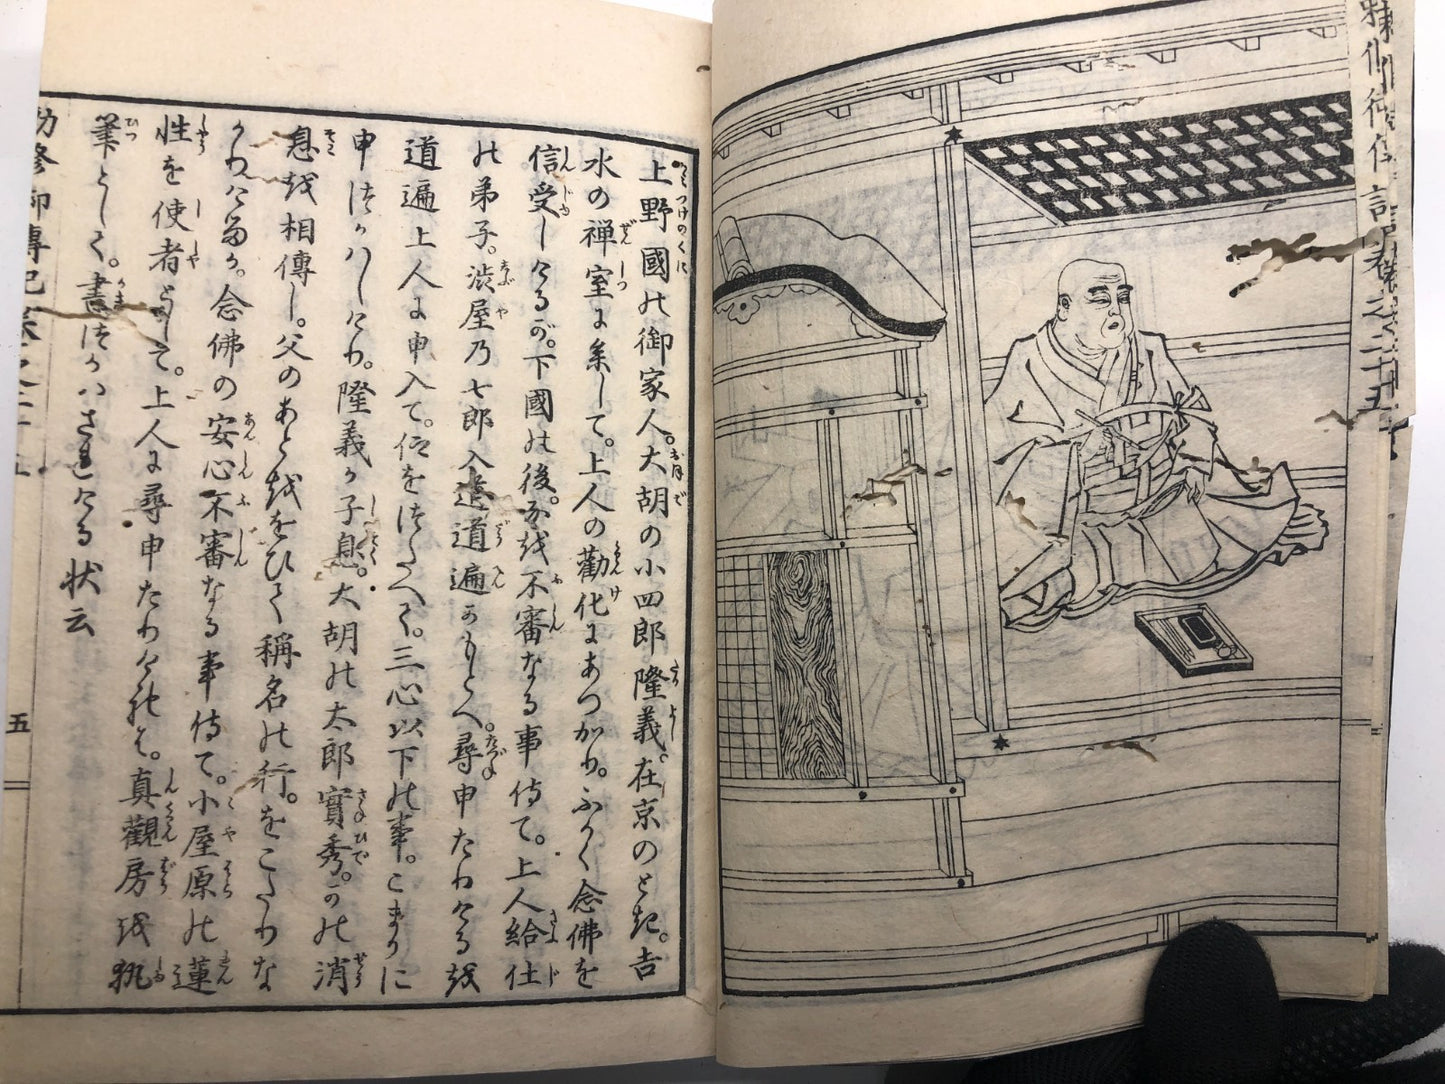 上野國の御家人。大胡の小四郎隆義。在京のとき。吉
水の禅室に參して。上人の勸化にあつかり。ふかく念佛を
信受しけるが。下國の後。なを不審なる事侍て。上人給仕
の弟子。渋屋乃七郎入道道遍かもとへ。尋申たりけるを
道遍上人に申入て。仰をつたへて。三心以下の事。こまかに
申つかハしけり。隆義か子息。大胡の太郎實秀。かの消
息を相傳し。父のあとををひて稱名の行。をこたりな
かりけるか。念佛の安心不審なる事侍て。小屋原の蓮
性を使者として。上人に尋申たりけれは。真觀房を執
筆として。書つかハされける状云
五